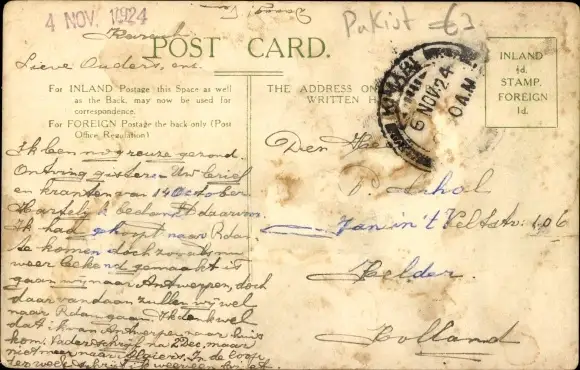 4 NOV. 1924
Pakist €3
Karachi
POST CARD.
Lieve Ouders, enz.
For INLAND Postage this Space as well
as the Back, may now be used for
correspondence.
For FOREIGN Postage the back only (Post
Office Regulation)
THE ADDRESS ON
WRITTEN H
INLAND
½d.
STAMP.
FOREIGN
1d.
KIAMARI
6 NOV. 24
10 A.M.
Ik ben nog reuze gezond.
Ontving gisteren Uw brief
en kranten van 14 October
Hartelijk bedankt daarvoor.
Ik had gehoopt naar Rdam.
te komen doch zooals nu
weer bekend gemaakt is
gaan wij naar Antwerpen, doch
daar vandaan zullen wij wel
naar Rdam gaan. Ik denk wel
dat ik van Antwerpen naar huis
kom. Vader schrijf na 2 Dec. maar
niet meer naar Algiers. In de loop
der week schrijf ik weer een brief.
Den Heer
P. Schol
Jan in 't Veltstr. 106
Helder.
Holland